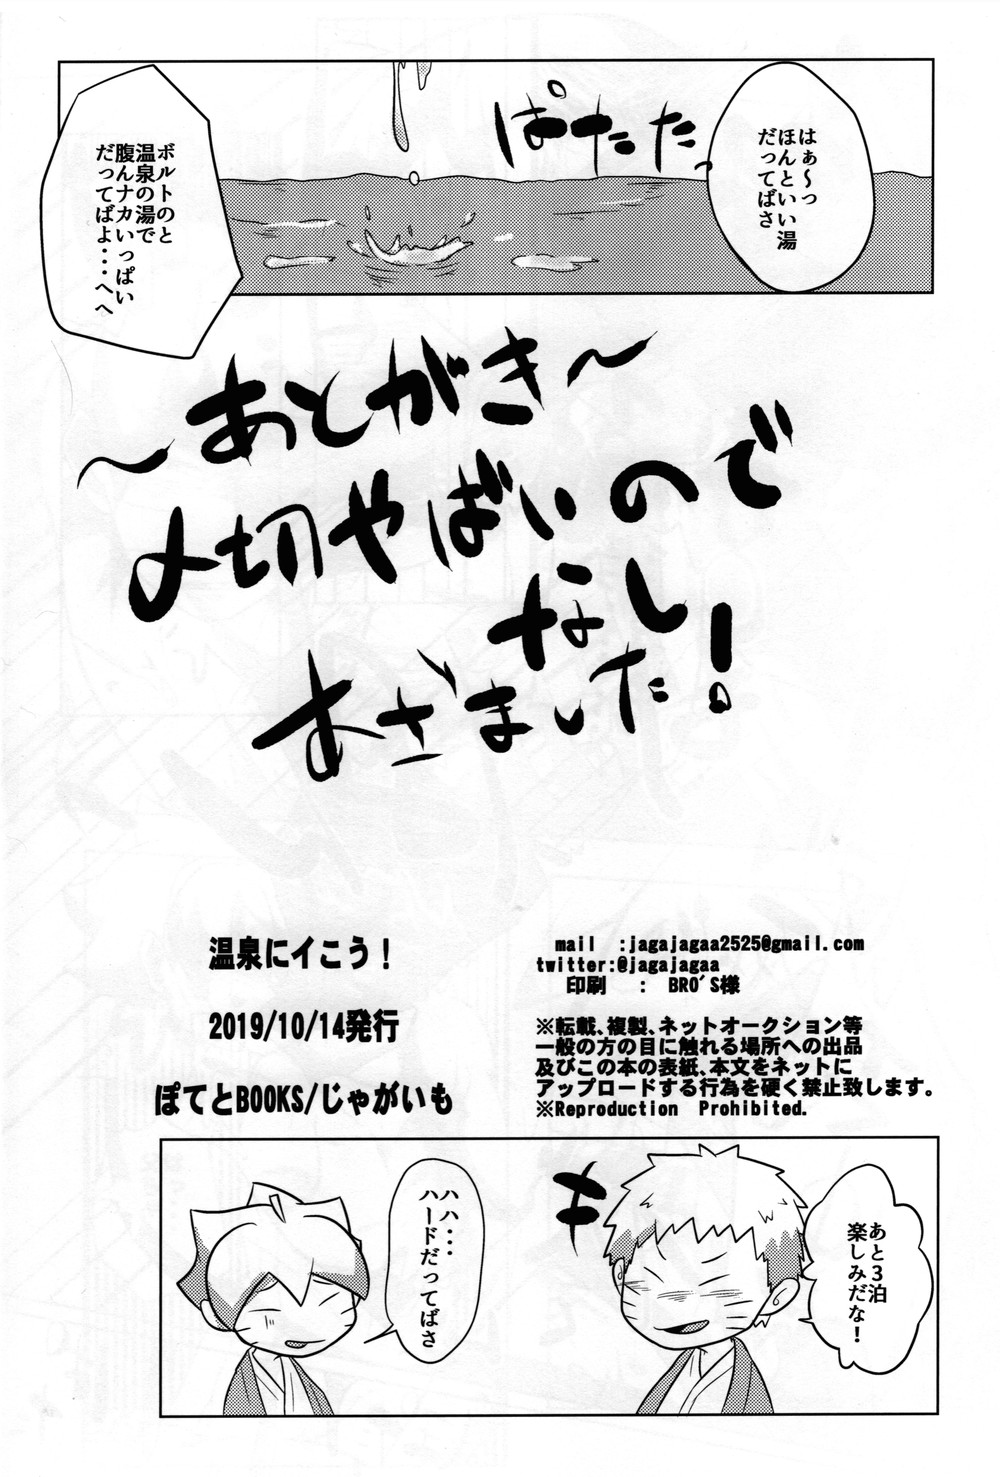 はぁ～っ
ほんといい湯
だってばさ
ぱたたっ
～あとがき～
〆切やばいので
なし
おさました！
温泉にイこう！
2019/10/14発行
ぽてとBOOKS/じゃがいも
mail :jagajagaa2525@gmail.com
twitter:@jagajagaa
印刷 : BRO'S様
※転載、複製、ネットオークション等
一般の方の目に触れる場所への出品
及びこの本の表紙、本文をネットに
アップロードする行為を硬く禁止致します。
※Reproduction Prohibited.
あと3泊
楽しみだな！
ハハ・・・
ハードだってばさ